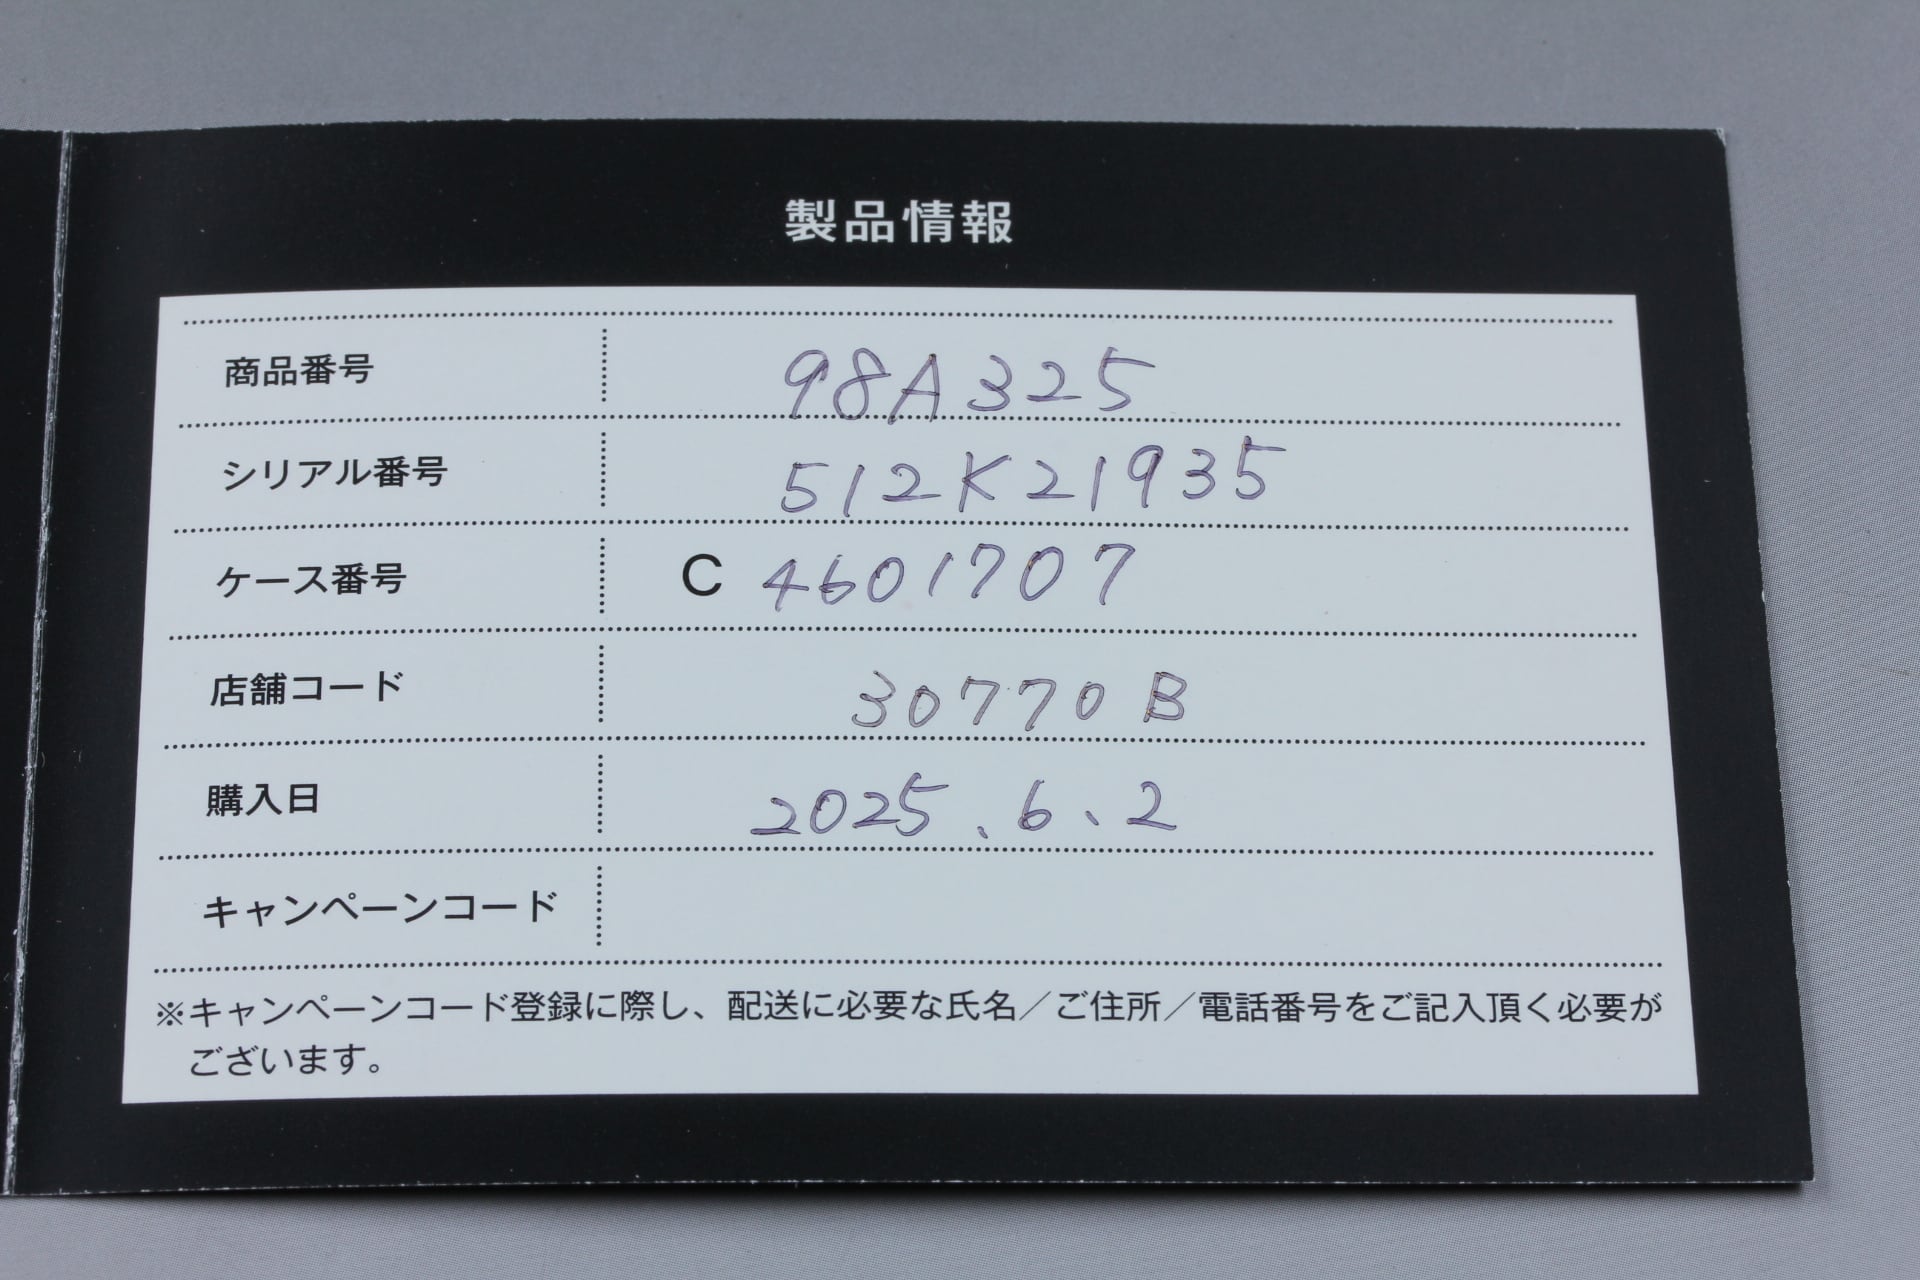 製品情報
商品番号 98A325
シリアル番号 512K21935
ケース番号 C 4601707
店舗コード 30770B
購入日 2025.6.2
キャンペーンコード
※キャンペーンコード登録に際し、配送に必要な氏名／ご住所／電話番号をご記入頂く必要が
ございます。